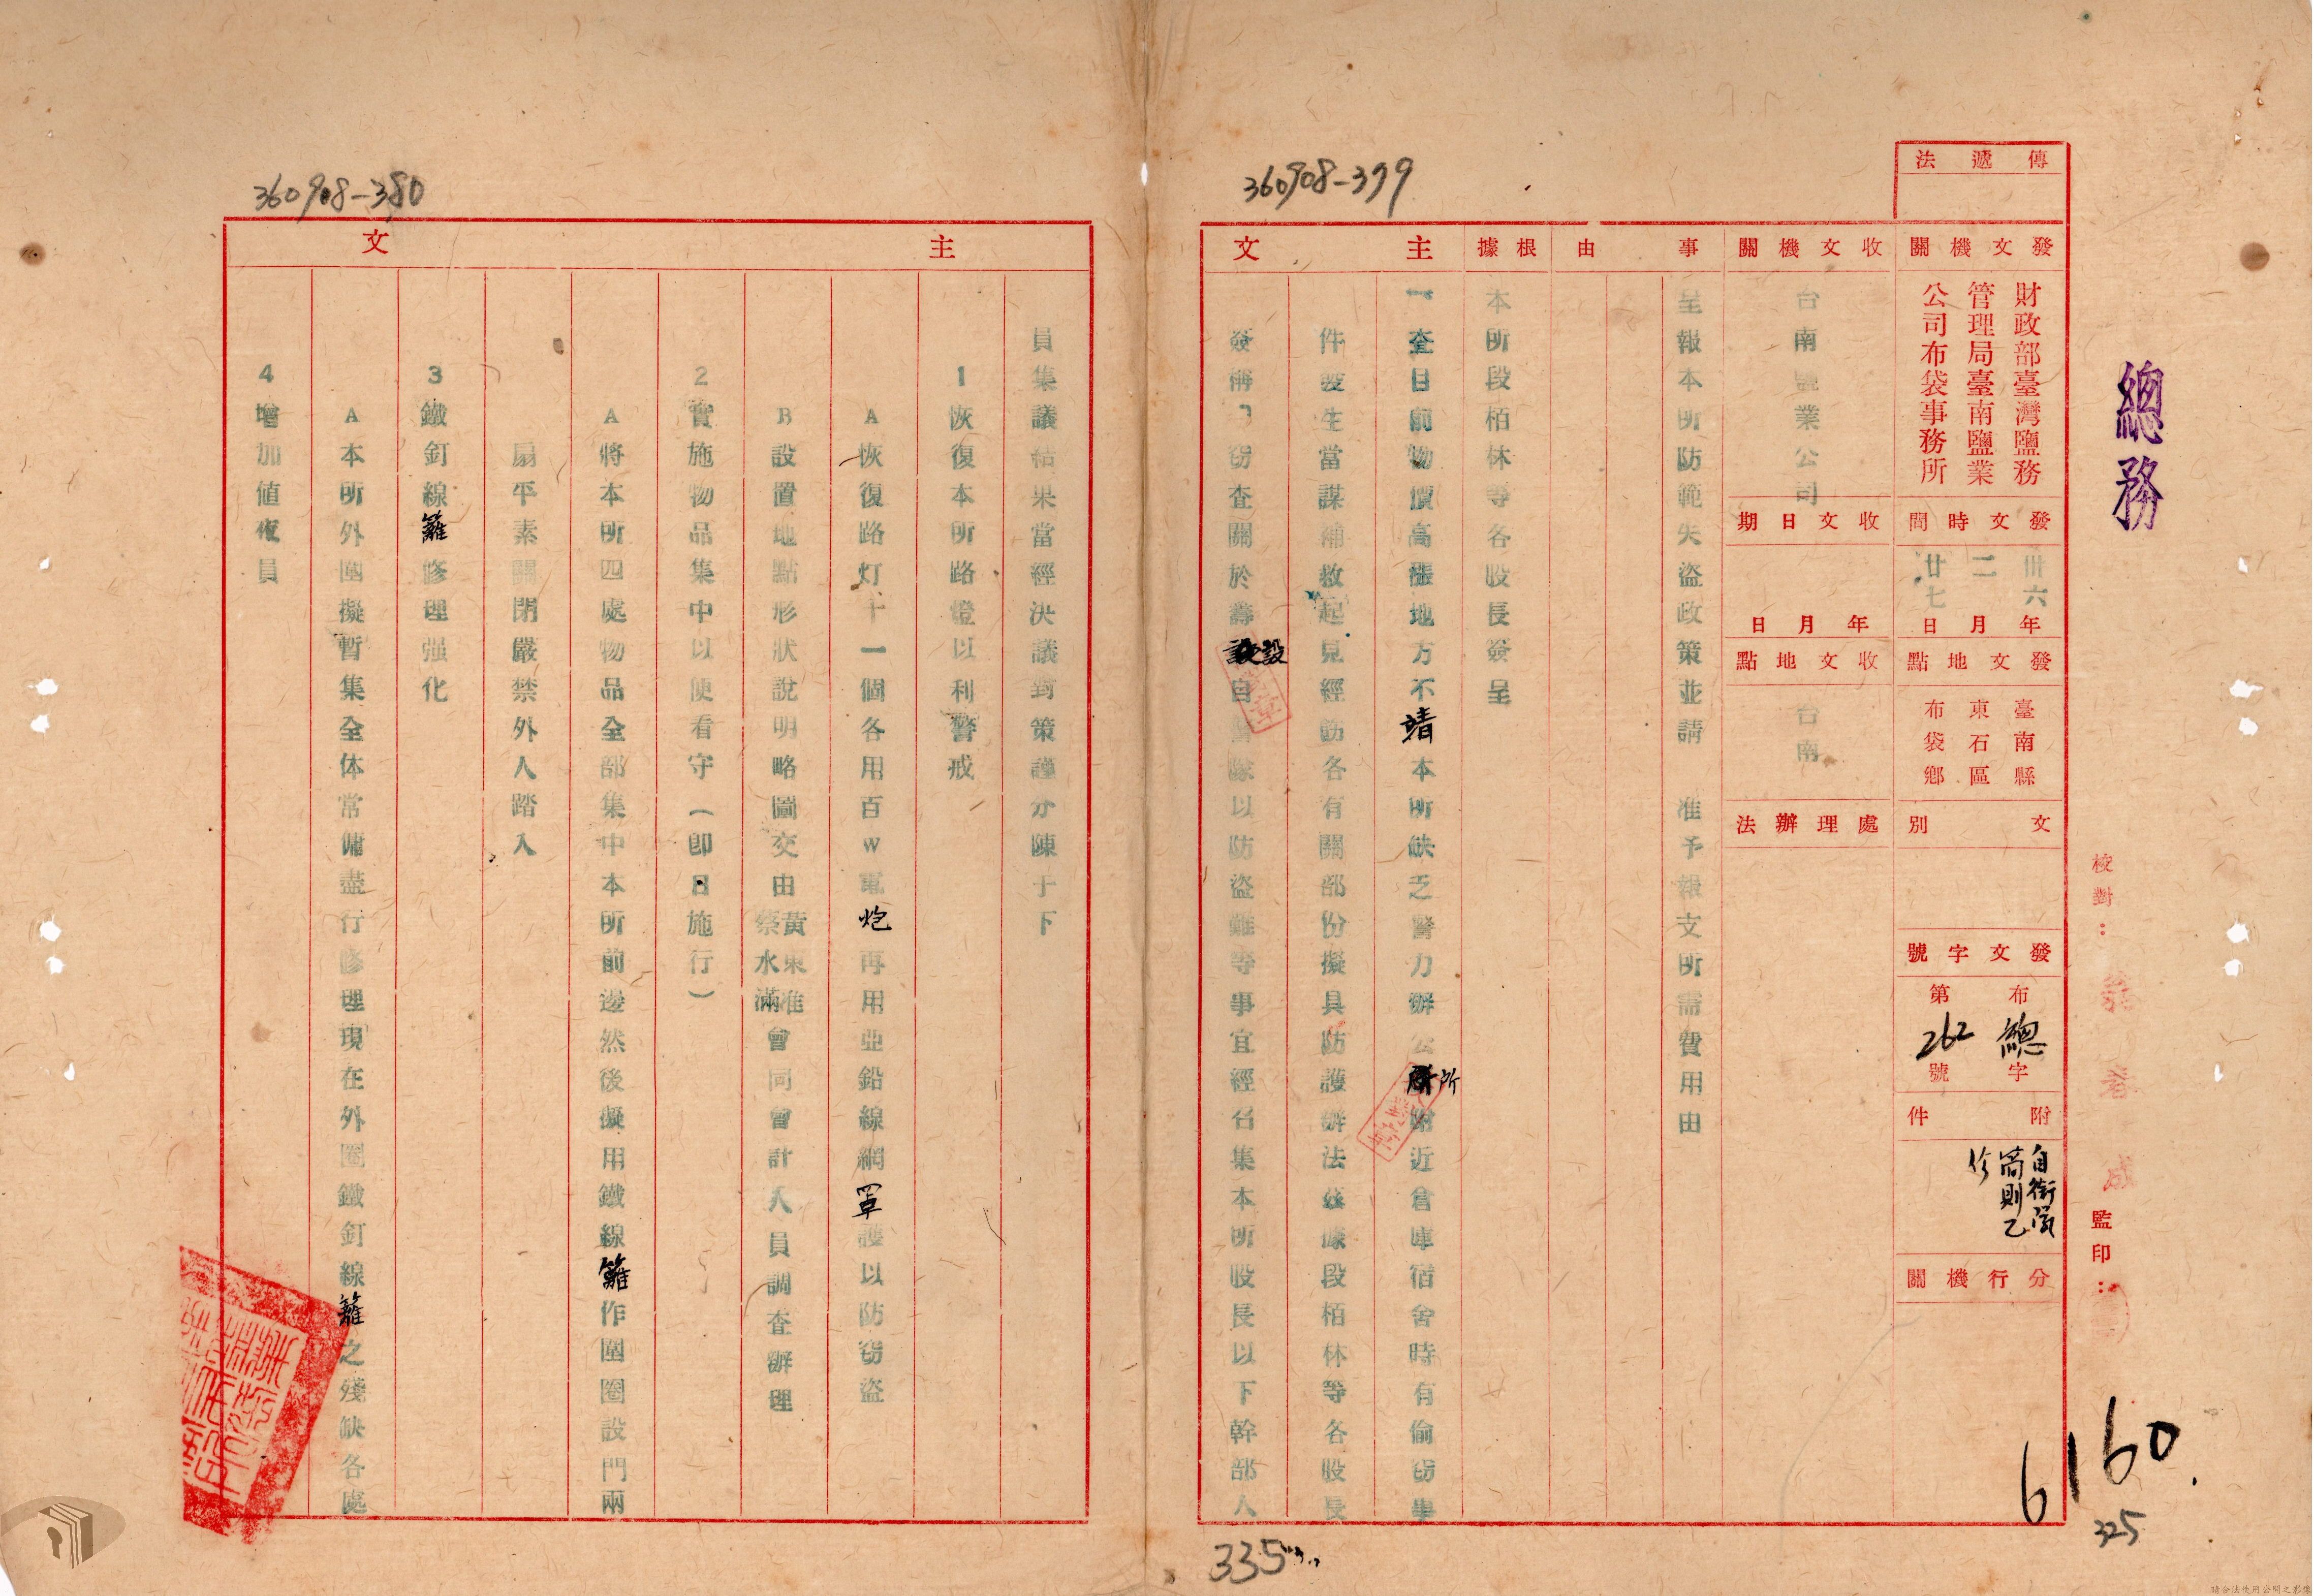 總務
傳遞法
發文機關
財政部臺灣鹽務
管理局臺南鹽業
公司布袋事務所
發文時間
卅六年
二月
廿七日
發文地點
臺南縣
東石區
布袋鄉
文別
發文字號
布總字
第262號
附件
自衛隊
簡則乙
份
分行機關
收文機關
台南鹽業公司
收文日期
年月日
收文地點
台南
處理辦法
事由
呈報本所防範失盜政策並請 准予報支所需費用由
根據
本所段栢林等各股長簽呈
主文
一、查目前物價高漲地方不靖本所缺乏警力辦公所附近倉庫宿舍時有偷窃事
件發生當謀補救起見經飭各有關部份擬具防護辦法茲據段栢林等各股長
簽稱「窃查關於籌設自警隊以防盜難等事宜經召集本所股長以下幹部人
校對:
監印:
6160
325
335
360908-379
360908-380
主文
員集議結果當經決議對策謹分陳于下
1恢復本所路燈以利警戒
A恢復路灯十一個各用百W電炮再用亞鉛線網罩護以防窃盜
B設置地點形狀說明略圖交由黃東准蔡水滿會同會計人員調查辦理
2實施物品集中以便看守(即日施行)
A將本所四處物品全部集中本所前邊然後擬用鐵線籬作圍圈設門兩
扇平素關閉嚴禁外人踏入
3鐵釘線籬修理强化
A本所外圍擬暫集全体常傭盡行修理現在外圈鐵釘線籬之殘缺各處
4增加值夜員
請合法使用公開之影像